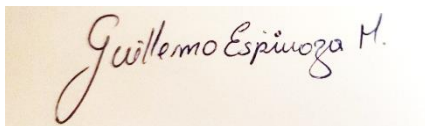 Guillemo Espinoza M.